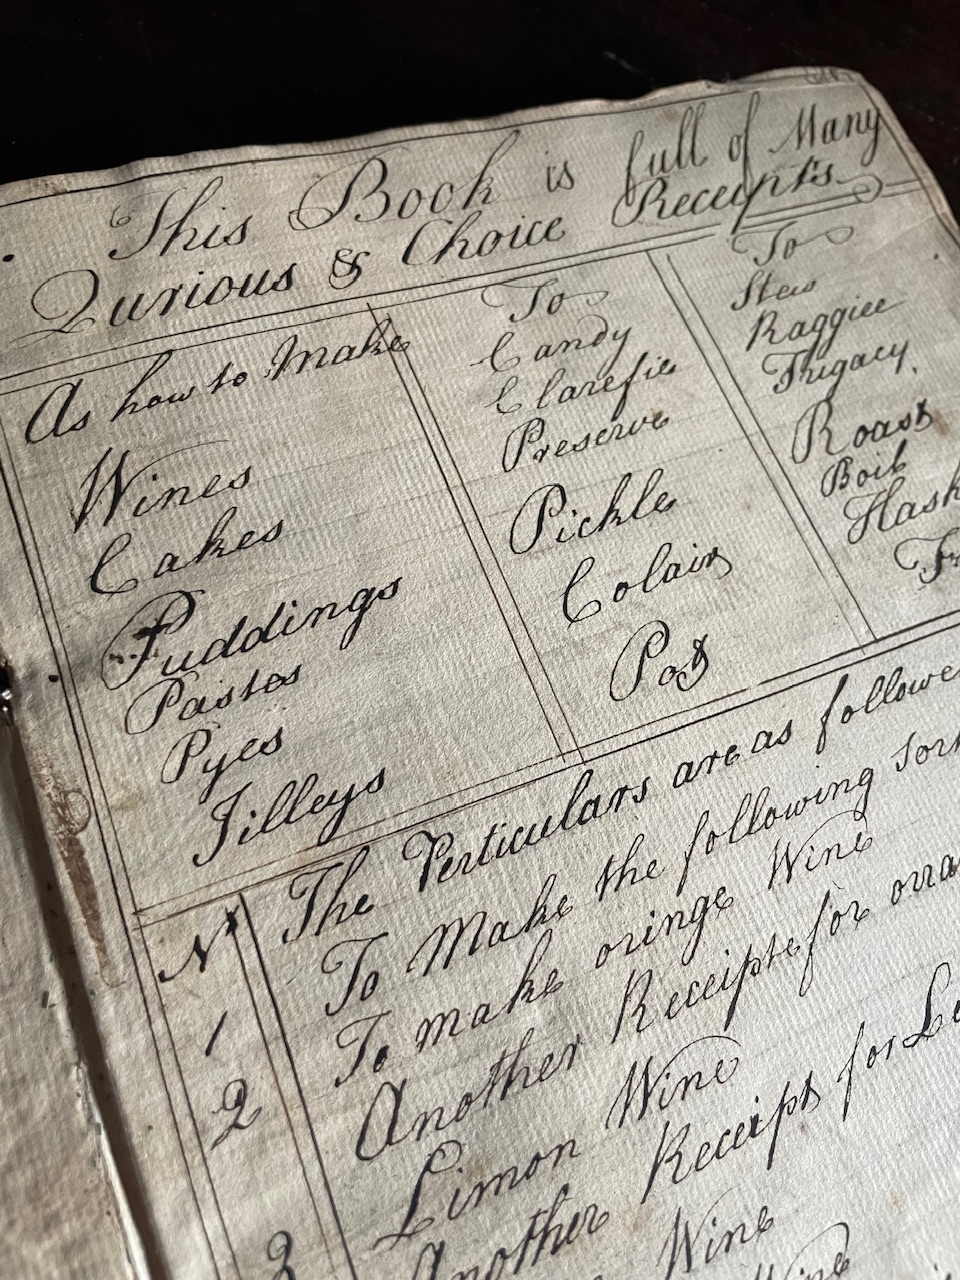 This Book is full of Many
Qurious & Choice Receipts
As how to Make
Wines
Cakes
Puddings
Pastes
Pyes
Jilleys
To
Candy
Clarefie
Preserve
Pickle
Colair
Pot
To
Stew
Raggiee
Frigacy
Roast
Boil
Hash
The Perticulars are as followe
Nr To Make the following sort
1 To make oringe Wine
2 Another Receipte for orra
Limon Wine
3 Another Receipt for Le
Wine
Wine